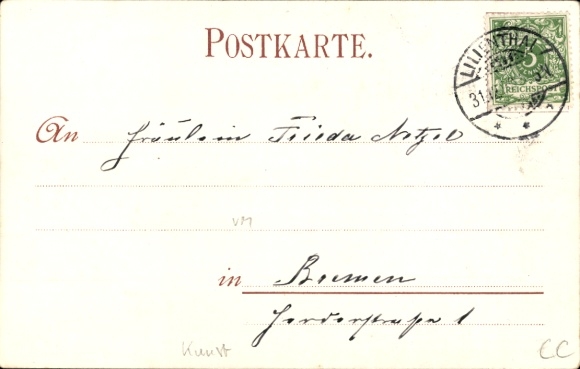 POSTKARTE.
LILIENTHAL
5
REICHSPOST
An Fräulein Frieda Notzel
VM
in Bremen
Herderstraße 1
Kunst
CC